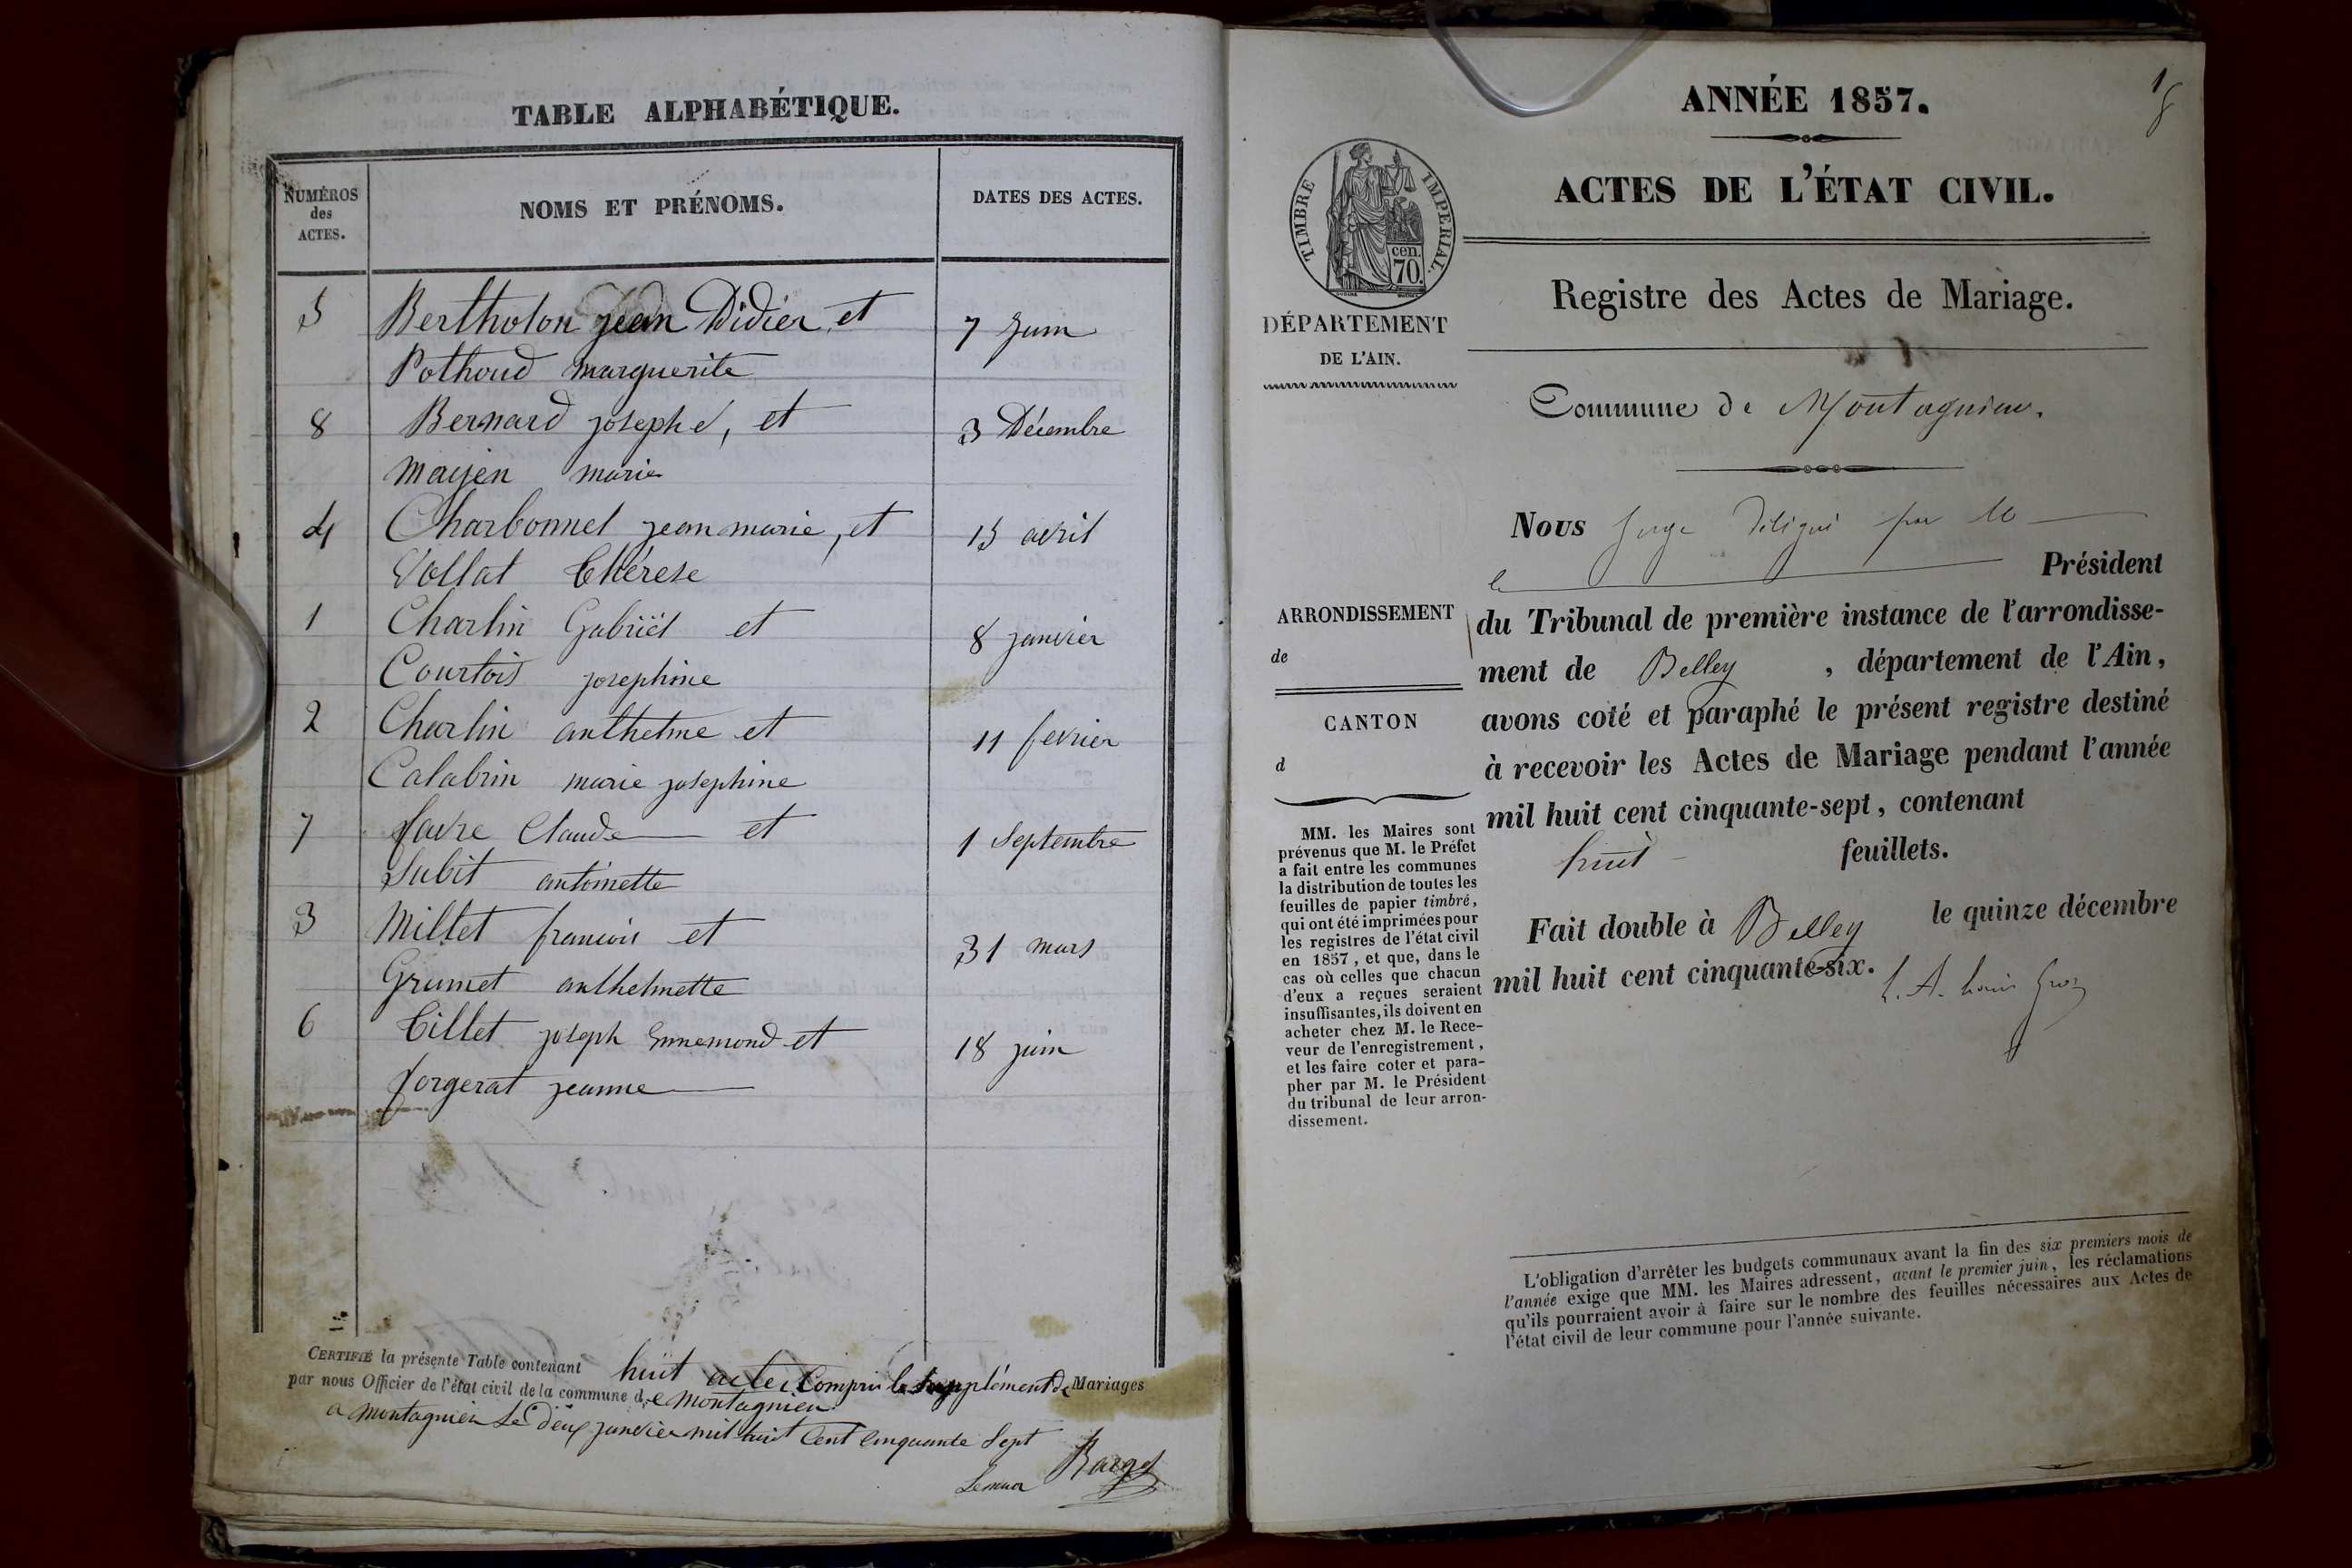 TABLE ALPHABÉTIQUE.
NUMÉROS des ACTES.
NOMS ET PRÉNOMS.
DATES DES ACTES.
5 Bertholon jean Didier et 7 Juin
Pothoud marguerite
8 Bernard josephe, et 3 Décembre
Mayen marie
4 Charbonnel jean marie, et 15 avril
Vollat Thérese
1 Charlin Gabriël et 8 janvier
Courtois josephine
2 Charlin anthelme et 11 fevrier
Calabrin marie josephine
7 favre Claude et 1 Septembre
Subit antoinette
3 Millet francois et 31 mars
Grumet anthelmette
6 Tillet joseph Ennemond et 18 juin
forgerat jeanne
CERTIFIÉ la présente Table contenant huit actes Compris le supplément de Mariages
par nous Officier de l'état civil de la commune de Montagnieu
a montagnieu Le deux janvier mil huit Cent Cinquante Sept
Le maire
1
8
ANNÉE 1857.
ACTES DE L'ÉTAT CIVIL.
TIMBRE IMPERIAL.
cen.
70.
Registre des Actes de Mariage.
DÉPARTEMENT
DE L'AIN.
Commune de Montagnieu.
Nous Juge délégué par M
le Président
ARRONDISSEMENT
de
CANTON
d
du Tribunal de première instance de l'arrondisse-
ment de Belley, département de l'Ain,
avons coté et paraphé le présent registre destiné
à recevoir les Actes de Mariage pendant l'année
mil huit cent cinquante-sept, contenant
huit feuillets.
Fait double à Belley le quinze décembre
mil huit cent cinquante-six.
MM. les Maires sont
prévenus que M. le Préfet
a fait entre les communes
la distribution de toutes les
feuilles de papier timbré,
qui ont été imprimées pour
les registres de l'état civil
en 1857, et que, dans le
cas où celles que chacun
d'eux a reçues seraient
insuffisantes, ils doivent en
acheter chez M. le Rece-
veur de l'enregistrement,
et les faire coter et para-
pher par M. le Président
du tribunal de leur arron-
dissement.
L'obligation d'arrêter les budgets communaux avant la fin des six premiers mois de
l'année exige que MM. les Maires adressent, avant le premier juin, les réclamations
qu'ils pourraient avoir à faire sur le nombre des feuilles nécessaires aux Actes de
l'état civil de leur commune pour l'année suivante.